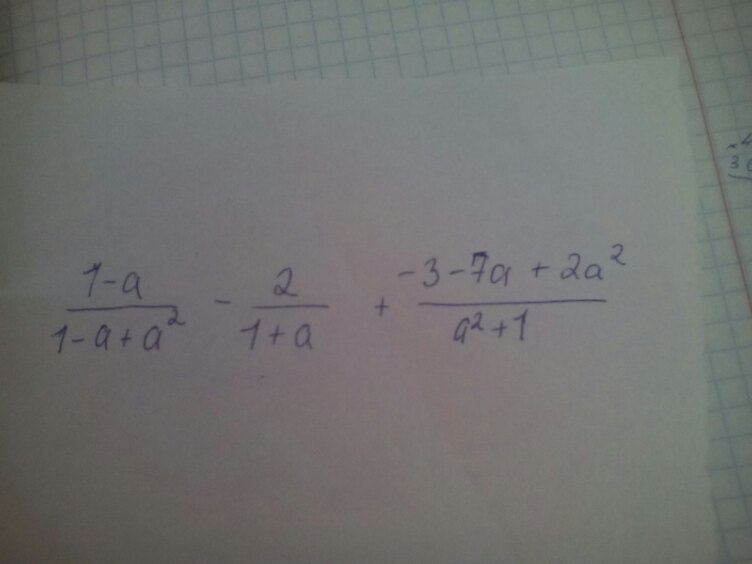 (1-a)/(1-a+a²) - 2/(1+a) + (-3-7a+2a²)/(a²+1)